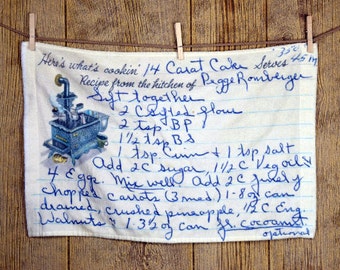 350
Here's what's cookin' 14 Carat Cake Serves 45 M
Recipe from the kitchen of Pegge Romberger
Sift together
2 C sifted flour
2 tsp BP
1½ tsp BS
1 tsp Cinn + 1 tsp salt
Add 2C sugar, 1½ C Veg oil &
4 Eggs. Mix well. Add 2C finely
chopped carrots (3 med) 1-8 oz can
drained, crushed pineapple, ½ C Eng
Walnuts + 1-3½ oz can gr. cocoanut
optional